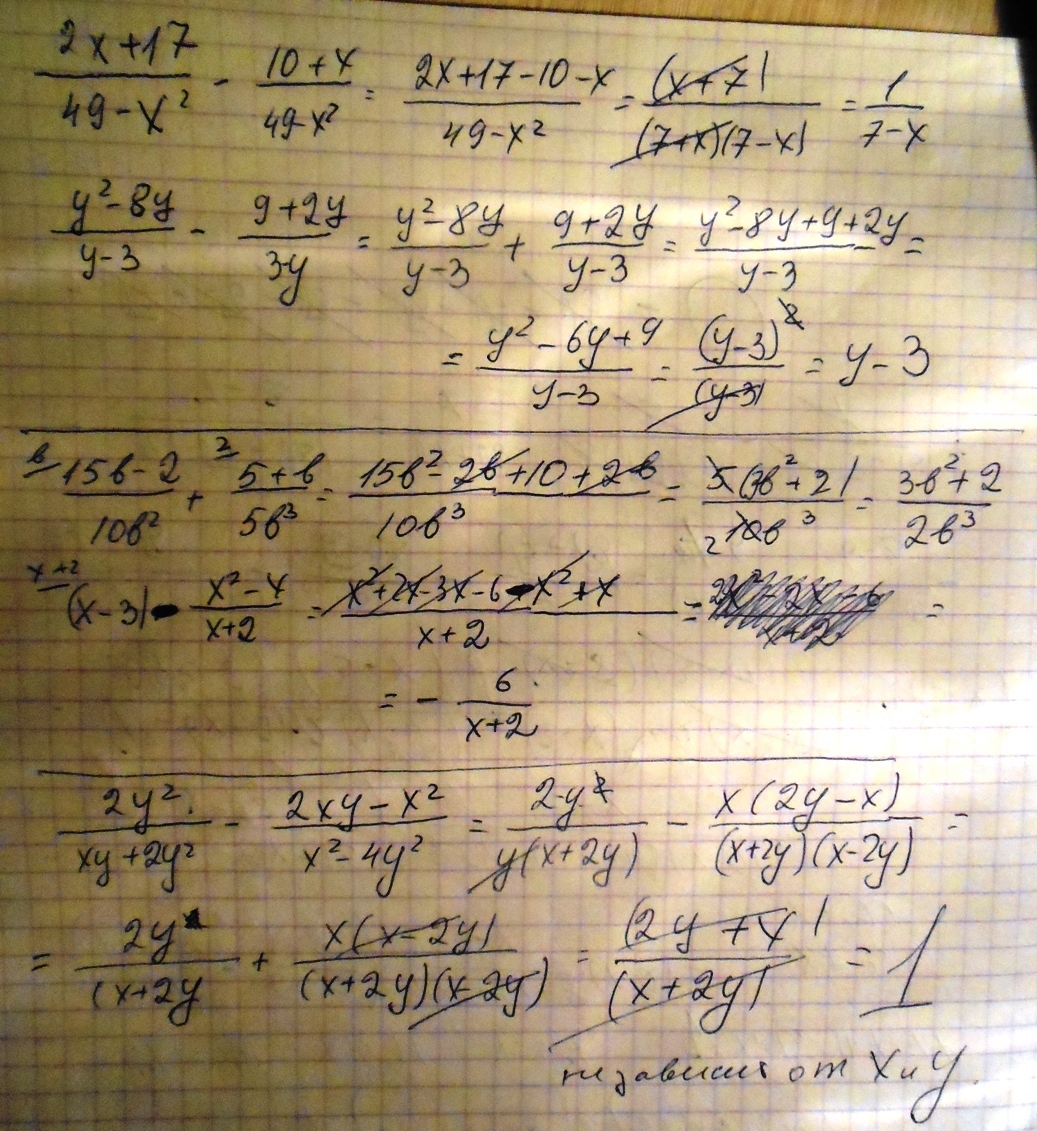 (2x+17)/(49-x²) - (10+x)/(49-x²) = (2x+17-10-x)/(49-x²) = (x+7)/((7+x)(7-x)) = 1/(7-x)
(y²-8y)/(y-3) - (9+2y)/(3-y) = (y²-8y)/(y-3) + (9+2y)/(y-3) = (y²-8y+9+2y)/(y-3) =
= (y²-6y+9)/(y-3) = (y-3)²/(y-3) = y-3
в 15в-2/(10в²) + 2 (5+в)/(5в³) = (15в²-2в+10+2в)/(10в³) = 5(3в²+2)/(10в³) = (3в²+2)/(2в³)
x+2 (x-3) - (x²-x)/(x+2) = (x²+2x-3x-6-x²+x)/(x+2) = =
= - 6/(x+2)
2y²/(xy+2y²) - (2xy-x²)/(x²-4y²) = 2y²/(y(x+2y)) - x(2y-x)/((x+2y)(x-2y)) =
= 2y/(x+2y + x(x-2y)/((x+2y)(x-2y)) = (2y+x)/(x+2y) = 1
не зависит от x и y.